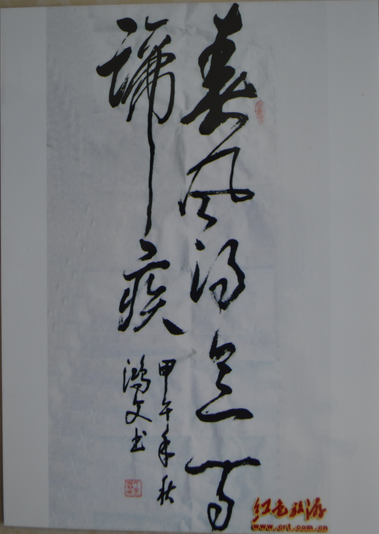 春风得意马
蹄疾
甲午年秋
鸿文书
红色旅游
www.crt.com.cn